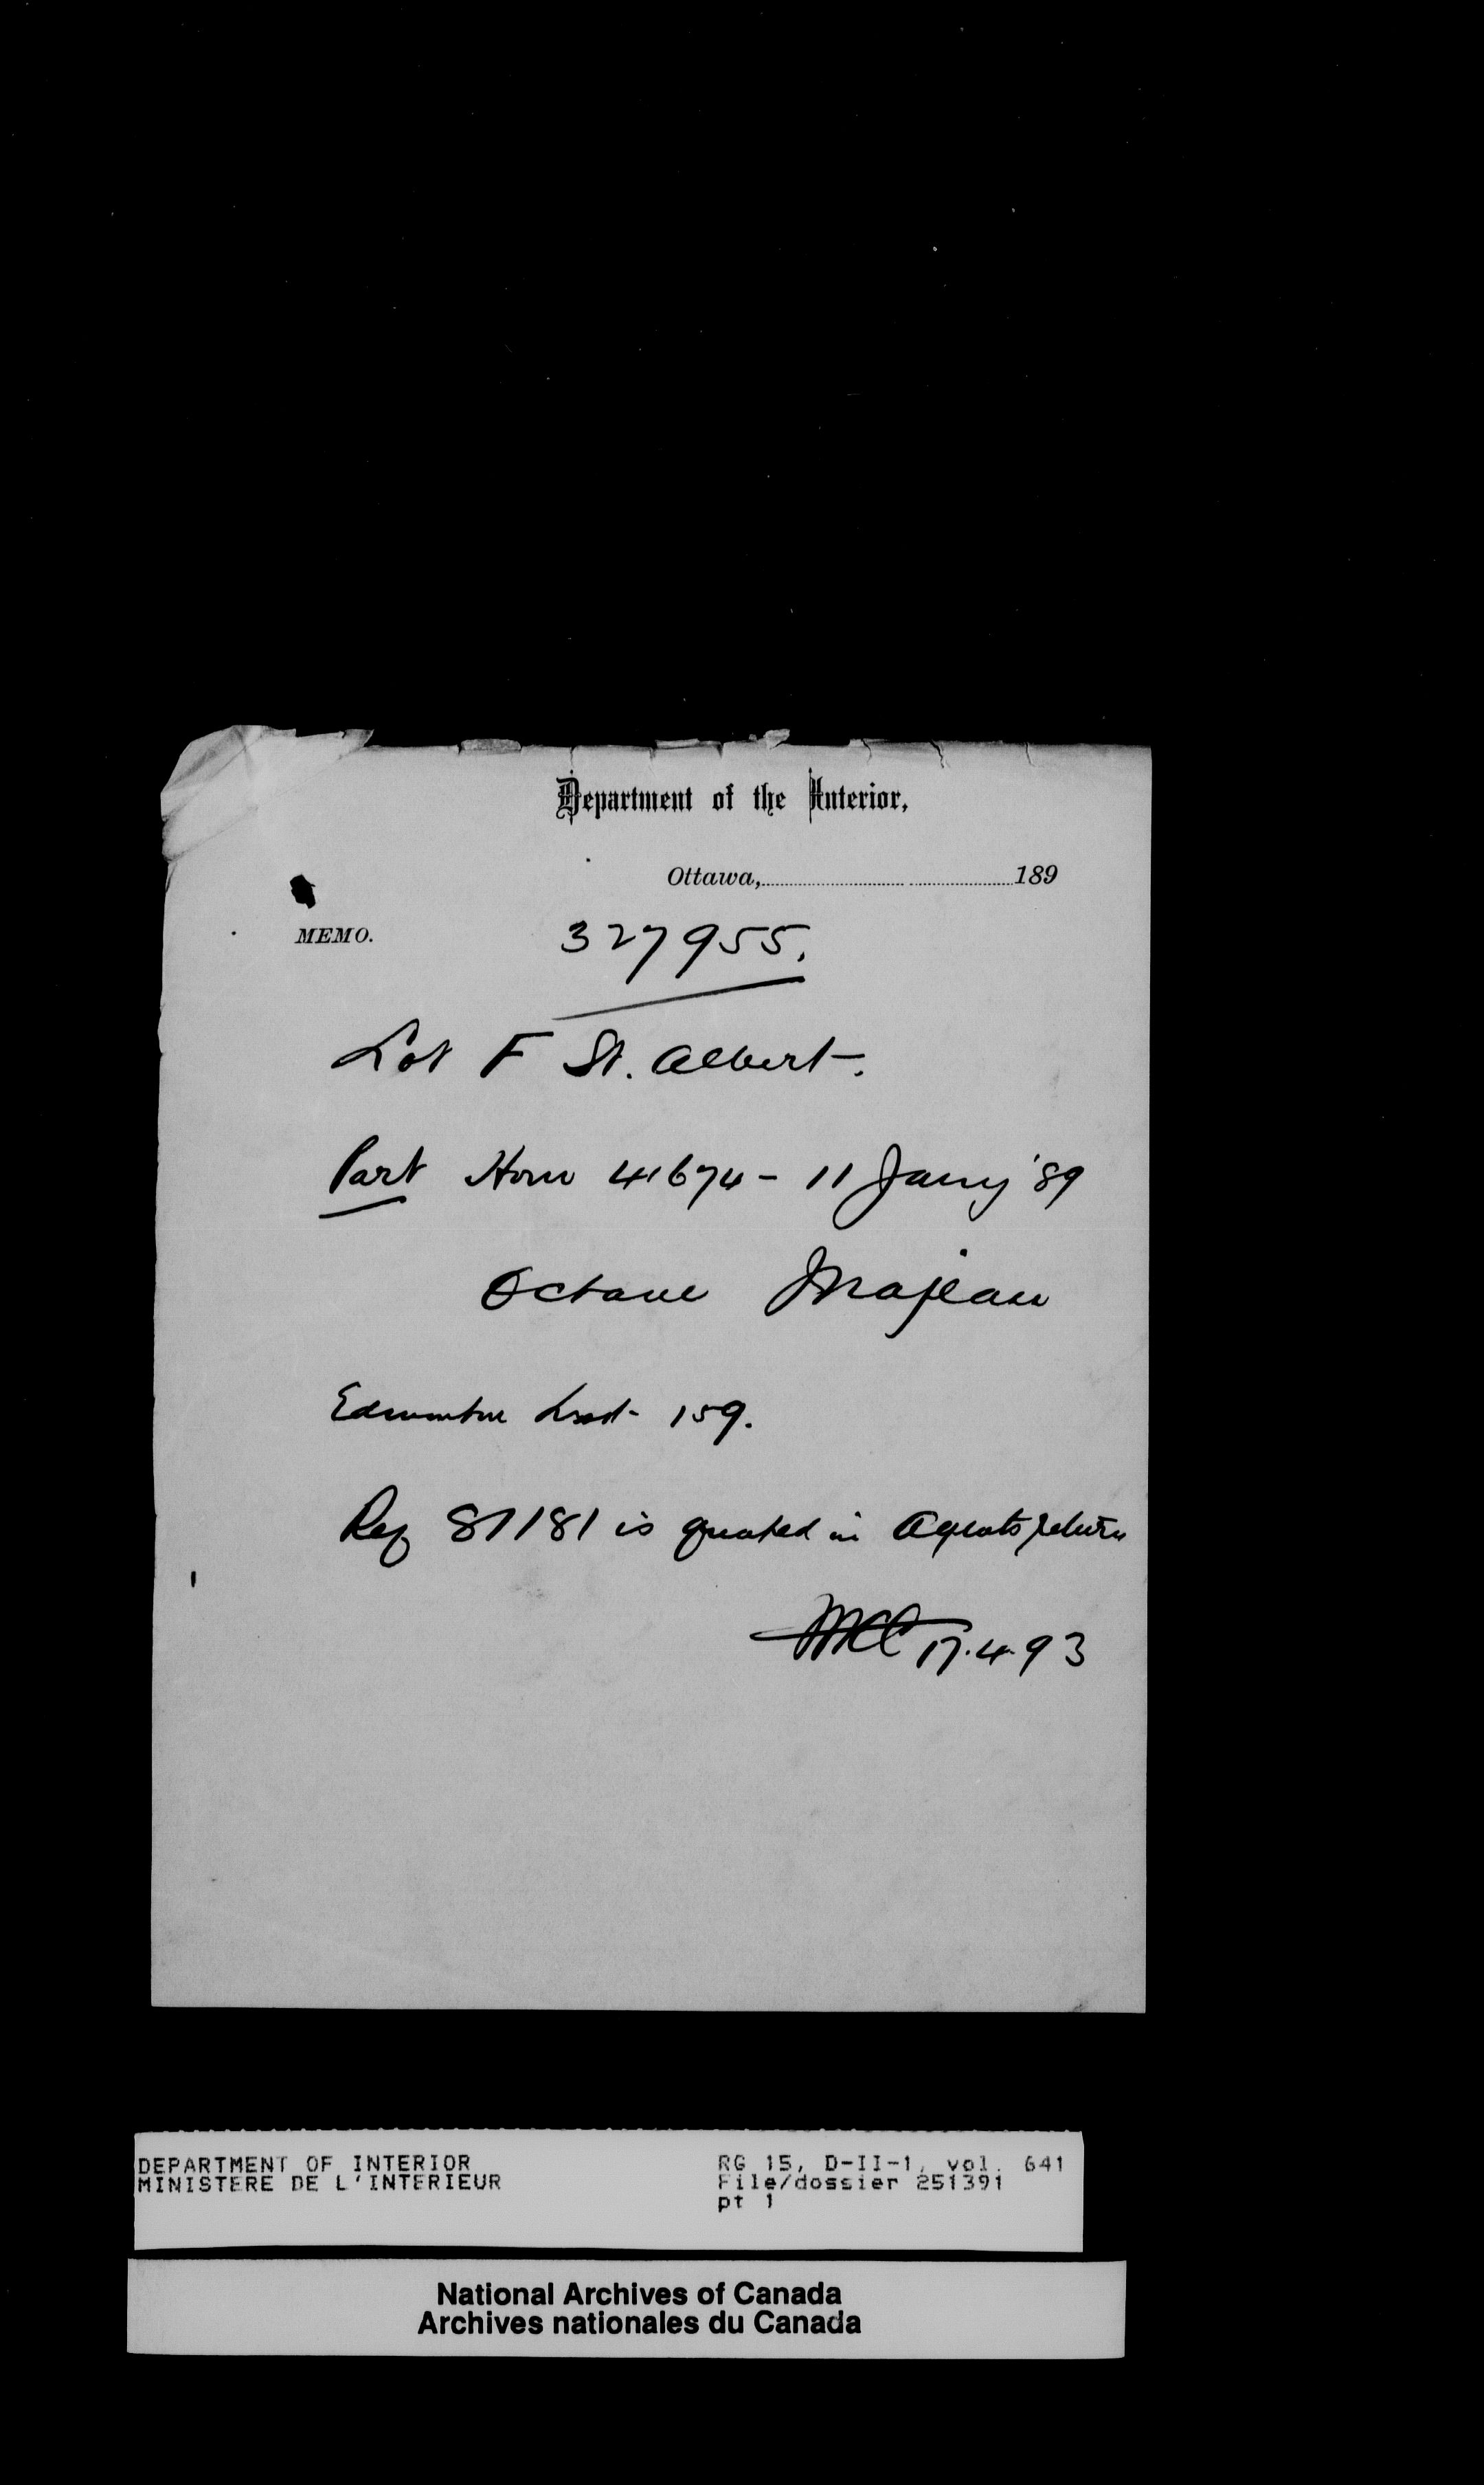 Department of the Interior,
Ottawa, 189
MEMO. 327955.
Lot F St. Albert.
Part Hom 41674 - 11 Jany '89
Octave Majeau
Edmonton List 159.
Ref 87181 is quoted in Agents return
17.4.93
DEPARTMENT OF INTERIOR
MINISTERE DE L'INTERIEUR
RG 15, D-II-1, vol. 641
File/dossier 251391
pt 1
National Archives of Canada
Archives nationales du Canada